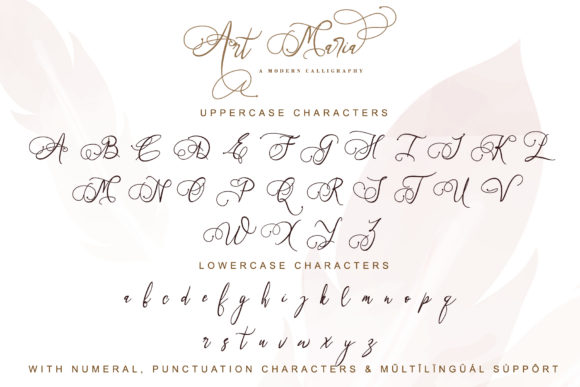 Art Maria
A MODERN CALLIGRAPHY
UPPERCASE CHARACTERS
A B C D E F G H I J K L
M N O P Q R S T U V
W X Y Z
LOWERCASE CHARACTERS
a b c d e f g h i j k l m n o p q
r s t u v w x y z
WITH NUMERAL, PUNCTUATION CHARACTERS & MŪLTĪLĪNGŪÁL SŪPPŌRT